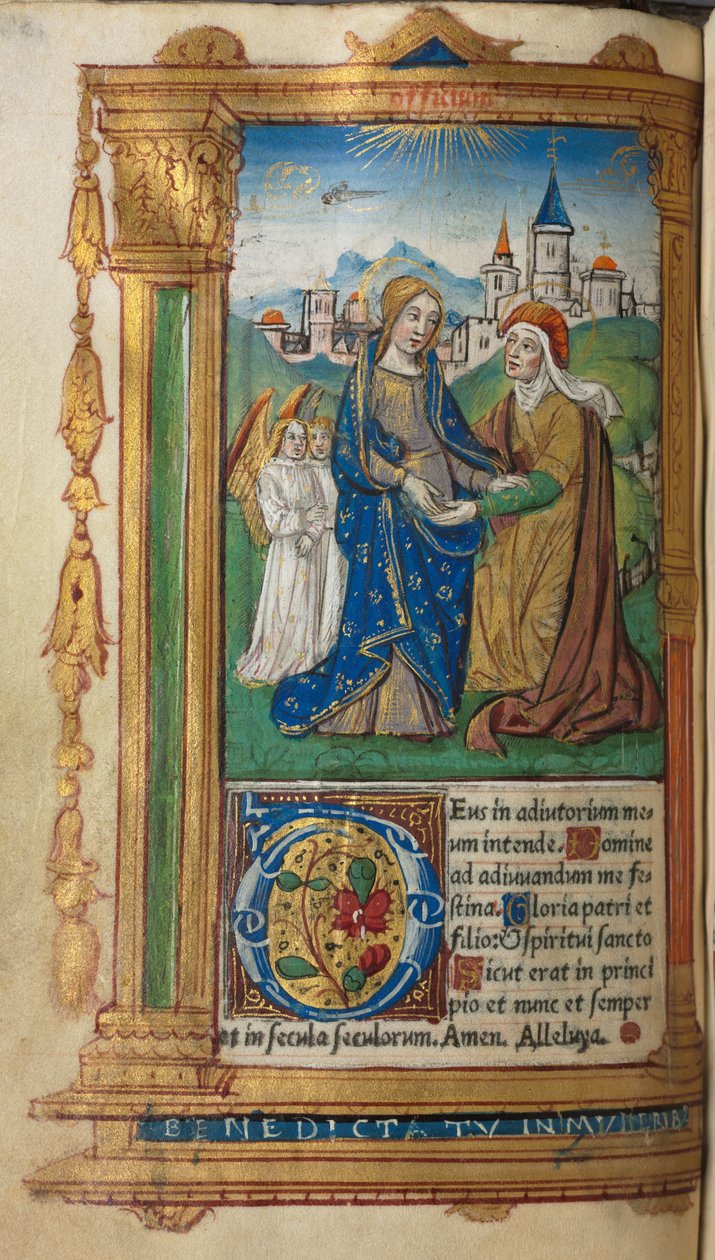 officium
Deus in adiutorium me⸗
um intende. Domine
ad adiuuandum me fe⸗
stina. Gloria patri et
filio: & spiritui sancto
Sicut erat in princi
pio et nunc et semper
et in secula seculorum. Amen. Alleluya.
BENEDICTA TV IN MVLIERIB